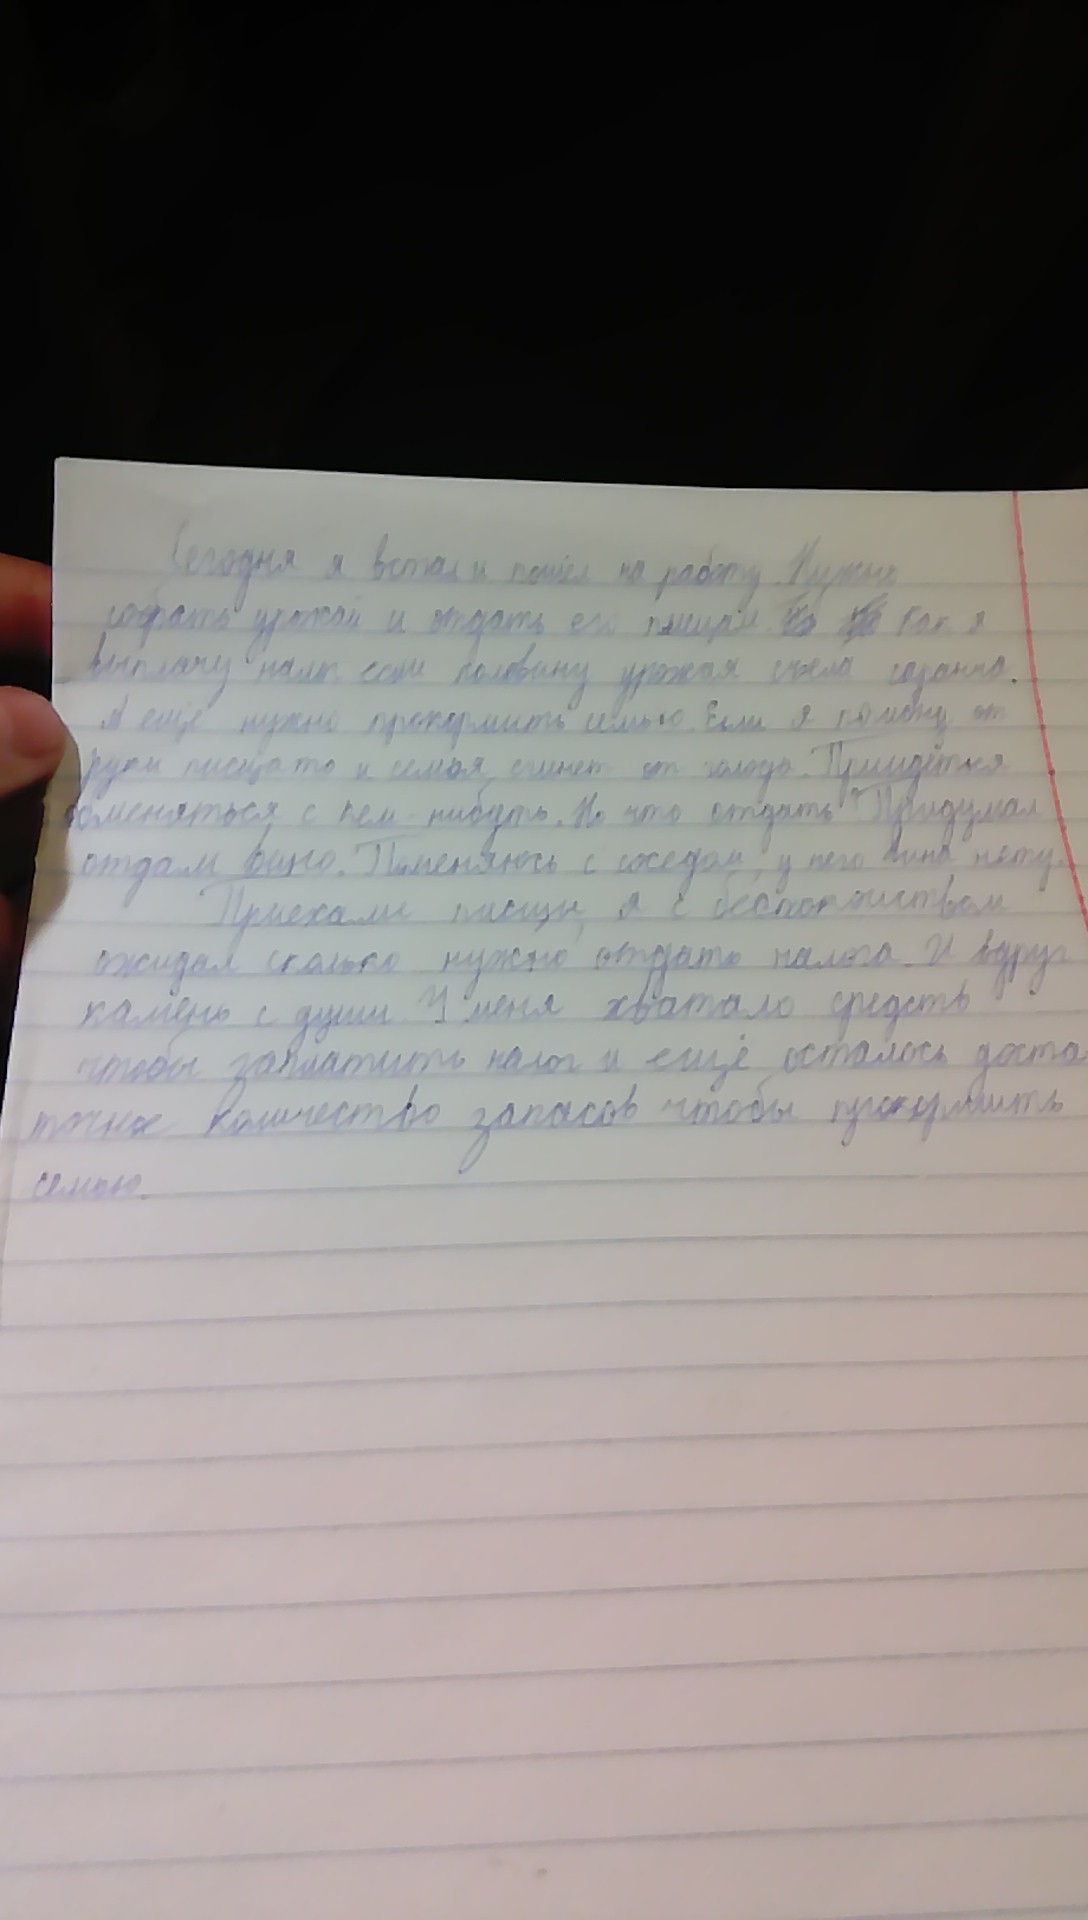 Сегодня я встал и пошёл на работу. Нужно
собрать урожай и отдать его писцам. Как я
выплачу налог если половину урожая съела саранча.
А ещё нужно прокормить семью. Если я помону от
руки писца то и семья сгинет от голода. Придёться
обменяться с кем-нибудь. Но что отдать? Придумал
отдам вино. Поменяюсь с соседом, у него вина нету.
Приехали писцы, я с беспокоиством
ожидал сколько нужно отдать налога. И вдруг
камень с души. У меня хватало средств
чтобы заплатить налог и ещё осталось доста
точное количество запасов чтобы прокормить
семью.